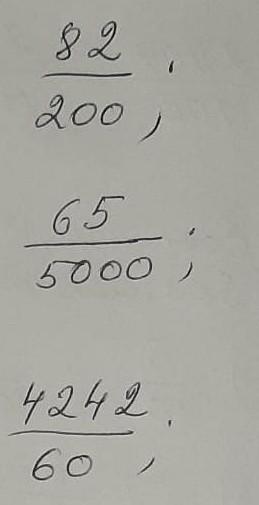 82
200;
65
5000;
4242
60;